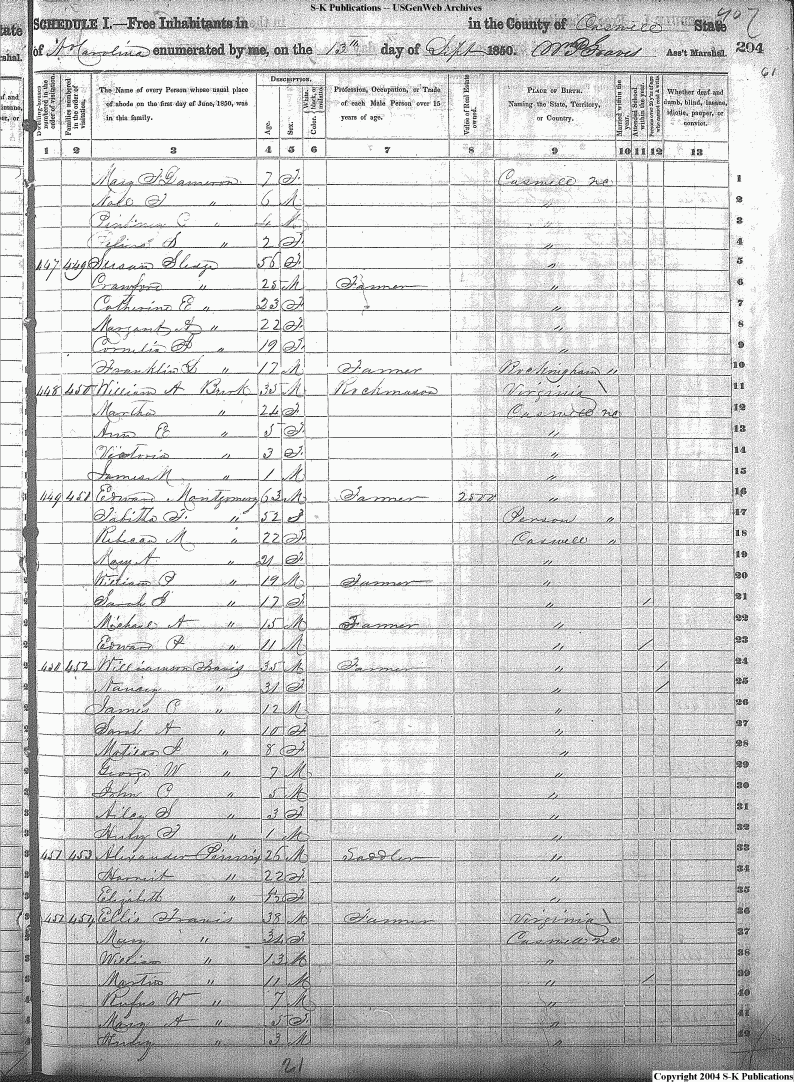 S-K Publications -- USGenWeb Archives
407
SCHEDULE I.—Free Inhabitants in in the County of Caswell State
of N Carolina enumerated by me, on the 13th day of Sept 1850. Ass't Marshal. 204
61
Dwelling-houses numbered in the order of visitation.
Families numbered in the order of visitation.
The Name of every Person whose usual place of abode on the first day of June, 1850, was in this family.
DESCRIPTION.
Age.
Sex.
Color.
Profession, Occupation, or Trade of each Male Person over 15 years of age.
Value of Real Estate owned.
PLACE OF BIRTH. Naming the State, Territory, or Country.
Married within the year.
Attended School within the year.
Whether deaf and dumb, blind, insane, idiotic, pauper, or convict.
1 2 3 4 5 6 7 8 9 10 11 12 13
Mary F Dameron 7 F Caswell nc 1
6 M " 2
" 3
" 2 F " 4
447 449 Susan Sledge F " 5
Crawford " 25 M Farmer " 6
Catherine E " 23 F " 7
Margaret A " 22 F " 8
Cornelia " 19 F " 9
Franklin S " 17 M Farmer Rockingham " 10
448 450 William A Burk 35 M Rockmason Virginia 11
Martha " 24 F Caswell nc 12
Ann E " 5 F " 13
Victoria " 3 F " 14
James M " 1 M " 15
449 451 Edward Montgomery 63 M Farmer 2500 " 16
Tabitha F. " 52 F Person " 17
Rebecca M " 22 F Caswell " 18
Mary A " 21 F " 19
William P " 19 M Farmer " 20
Sarah F " 17 F " / 21
Michael A " 15 M Farmer " 22
Edward P " 11 M " / 23
450 452 Williamson Travis 35 M Farmer " / 24
Nancy " 31 F " / 25
James C " 12 M " 26
Sarah A " 10 F " 27
Matilda F " 8 F " 28
George W " 7 M " 29
John C " 5 M " 30
" 3 F " 31
" 1 M " 32
451 453 Alexander 26 M Saddler " 33
Harriet " 22 F " 34
Elizabeth " F " 35
452 454 Ellis Travis 38 M Farmer Virginia 36
Mary " 34 F Caswell nc 37
William " 13 M "
Martin " 11 M " / 39
Rufus W " 7 M " 40
Mary A " 5 F " 41
Henry " 3 M " 42
21
Copyright 2004 S-K Publications